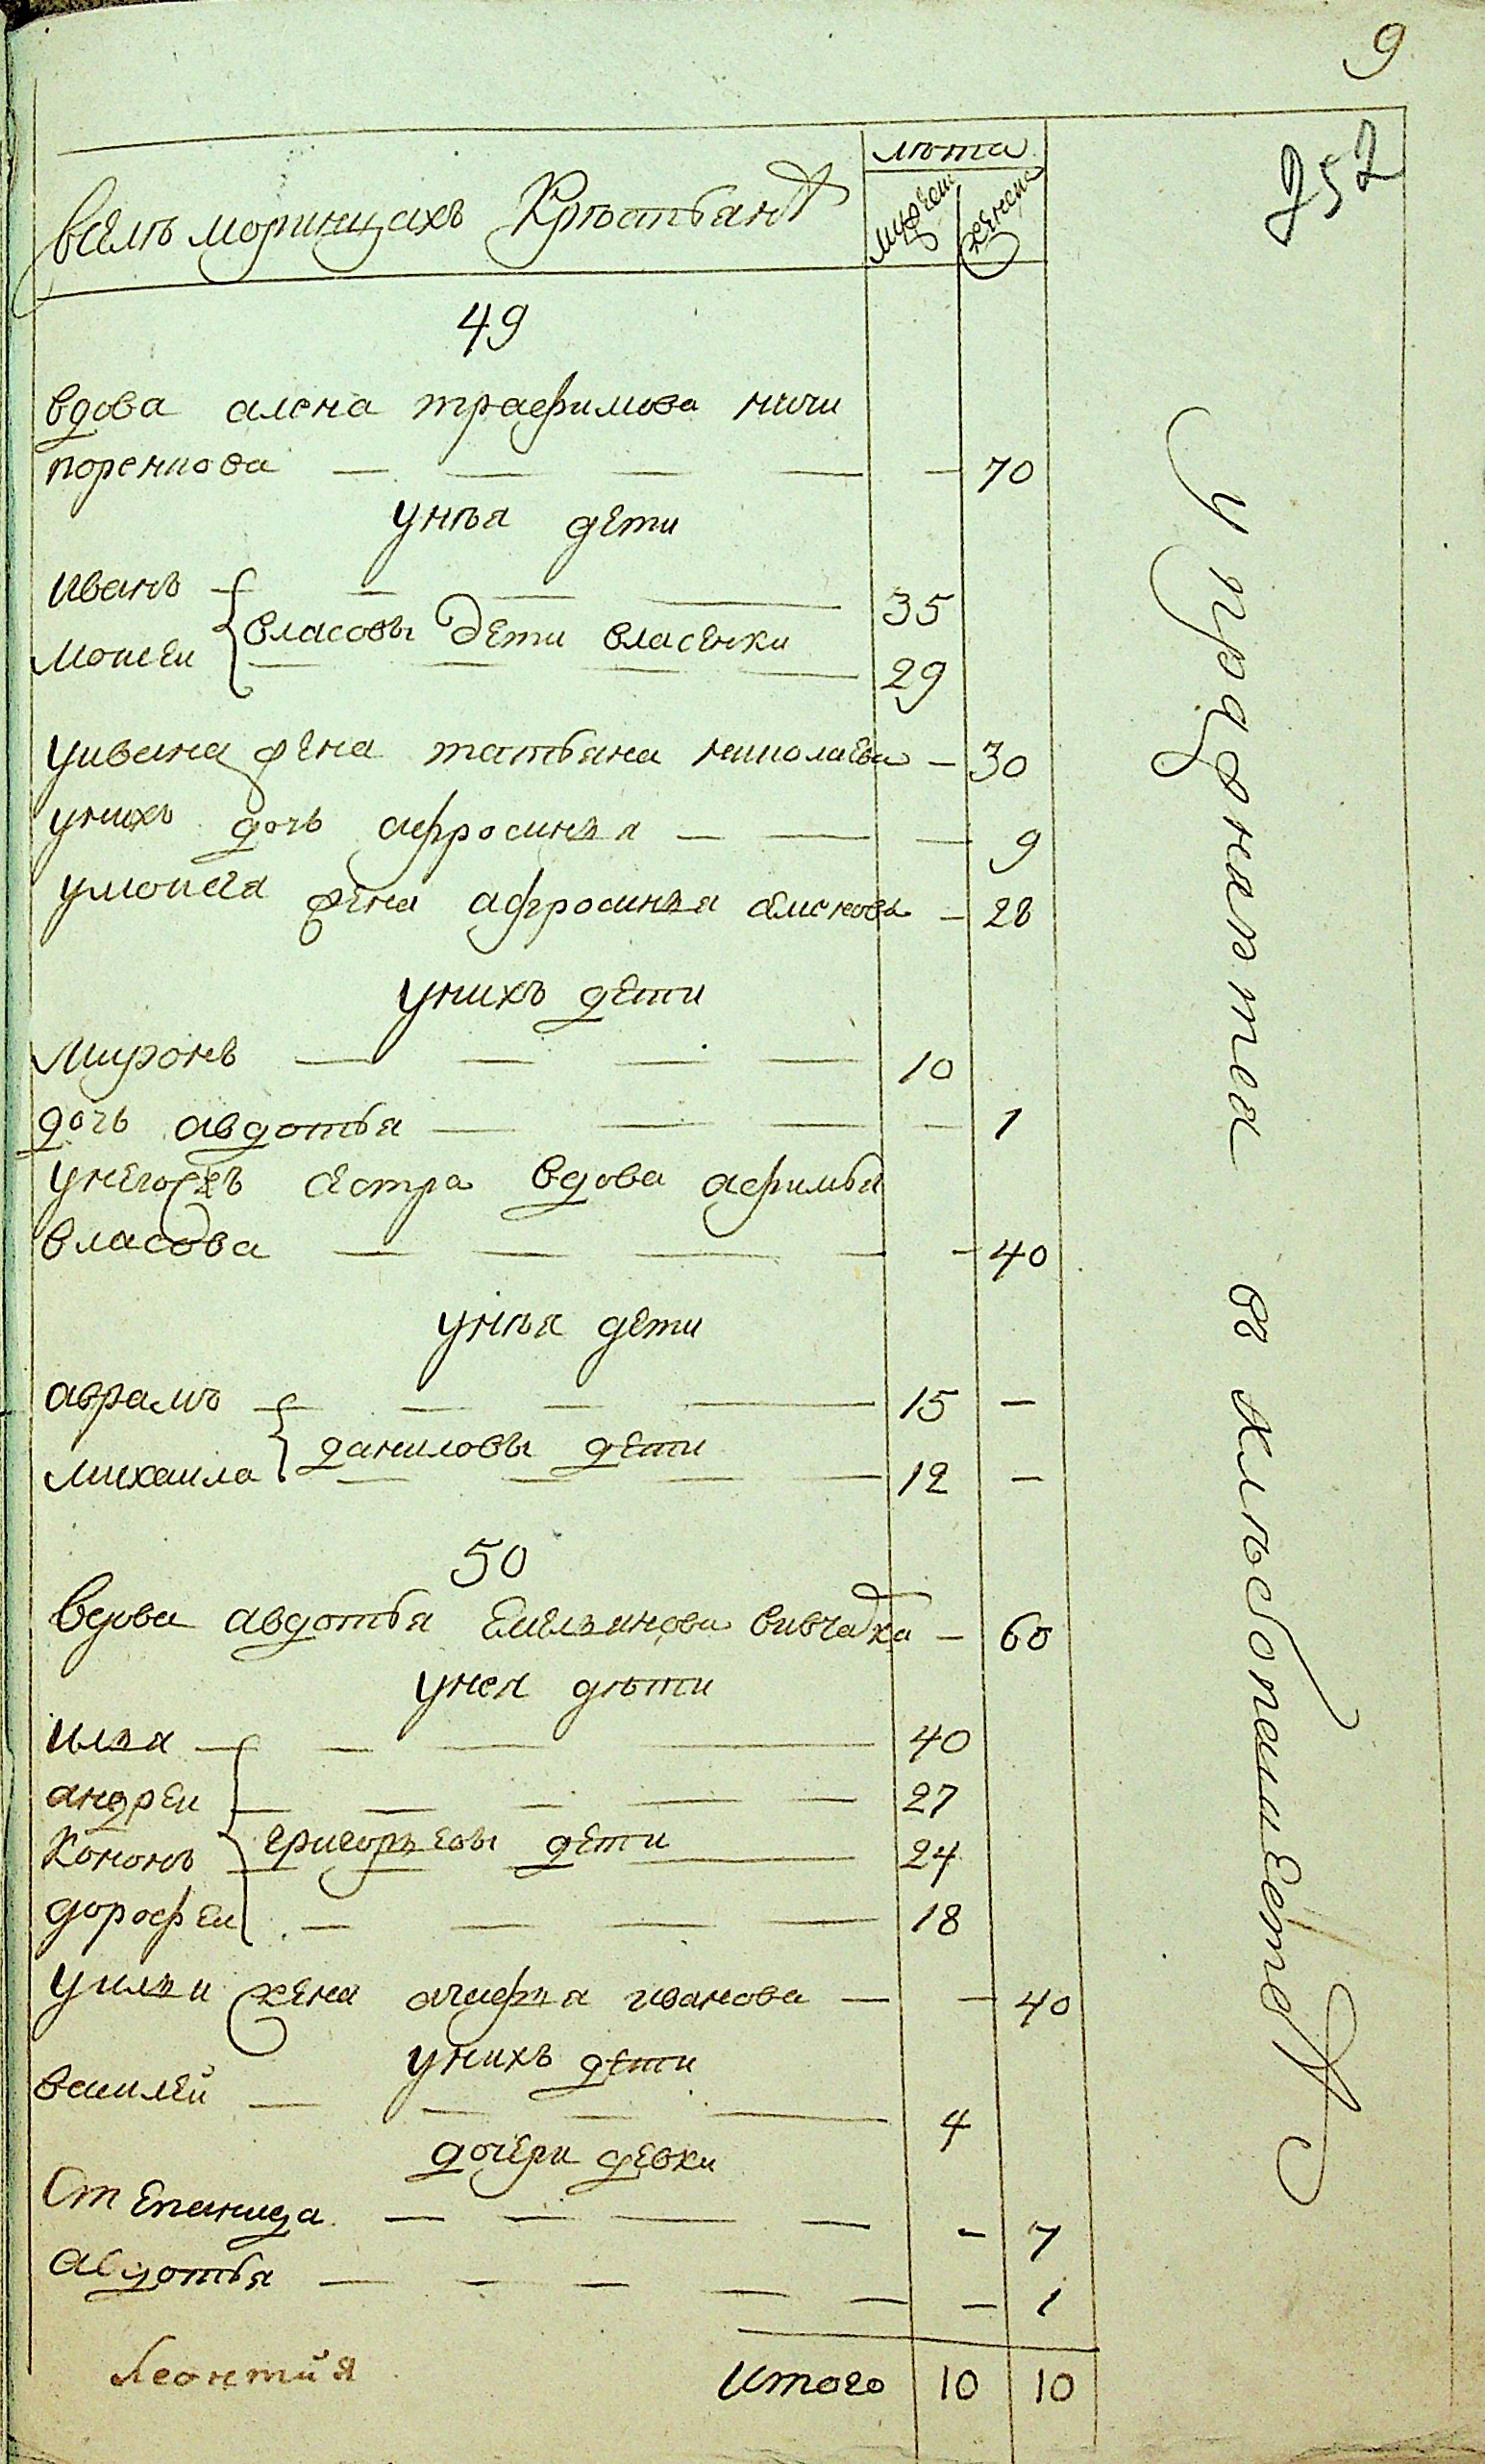 9
252
лѣта
вселѣ моринцахъ Крѣстьянъ
мужеска
женска
49
вдова алена трафимова ничи
поренкова — — — — — 70
унѣя дети
иванъ — — — — 35
власовы дети власенки
моисеи — — — — 29
уивана жена татьяна николаева — 30
унихъ дочь афросинья — — — 9
умоисея жена афросинья — 28
унихъ дети
миронъ — — — — 10
дочь авдотья — — — — 1
унегожъ сестра вдова афимья
власова — — — — — 40
унѣя дети
аврамъ — — — — 15 —
даниловы дети
михаила — — — — 12 —
50
вдова авдотья Емельянова — 60
унея дѣти
илья — — — — 40
андреи — — — — — 27
григорьевы дети
кононъ — — — — 24
дорофеи — — — — 18
уильи жена агафья иванова — — 40
унихъ дети
василей — — — — 4
дочери девки
Степанида — — — — — 7
авдотья — — — — — — 1
итого 10 10
Леонтий
упражняются въ хлѣбопашествѣ